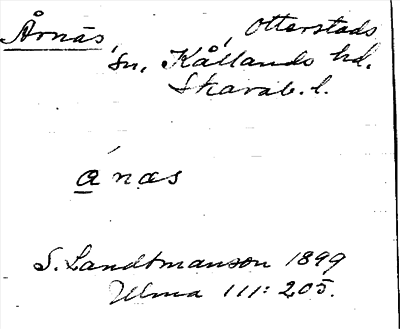 Årnäs, Otterstads
sn, Kållands hd.
Skarab. l.
ánæs
S. Landtmanson 1899
Ulma 111: 205.